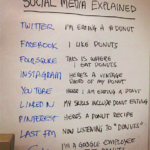 SOCIAL MEDIA EXPLAINED
TWITTER I'M EATING A # DONUT
FACEBOOK I LIKE DONUTS
FOURSQUARE THIS IS WHERE I EAT DONUTS
INSTAGRAM HERE'S A VINTAGE PHOTO OF MY DONUT
YOUTUBE HERE I AM EATING A DONUT
LINKED IN MY SKILLS INCLUDE DONUT EATING
PINTEREST HERE'S A DONUT RECIPE
LAST FM NOW LISTENING TO "DONUTS"
I'M A GOOGLE EMPLOYEE